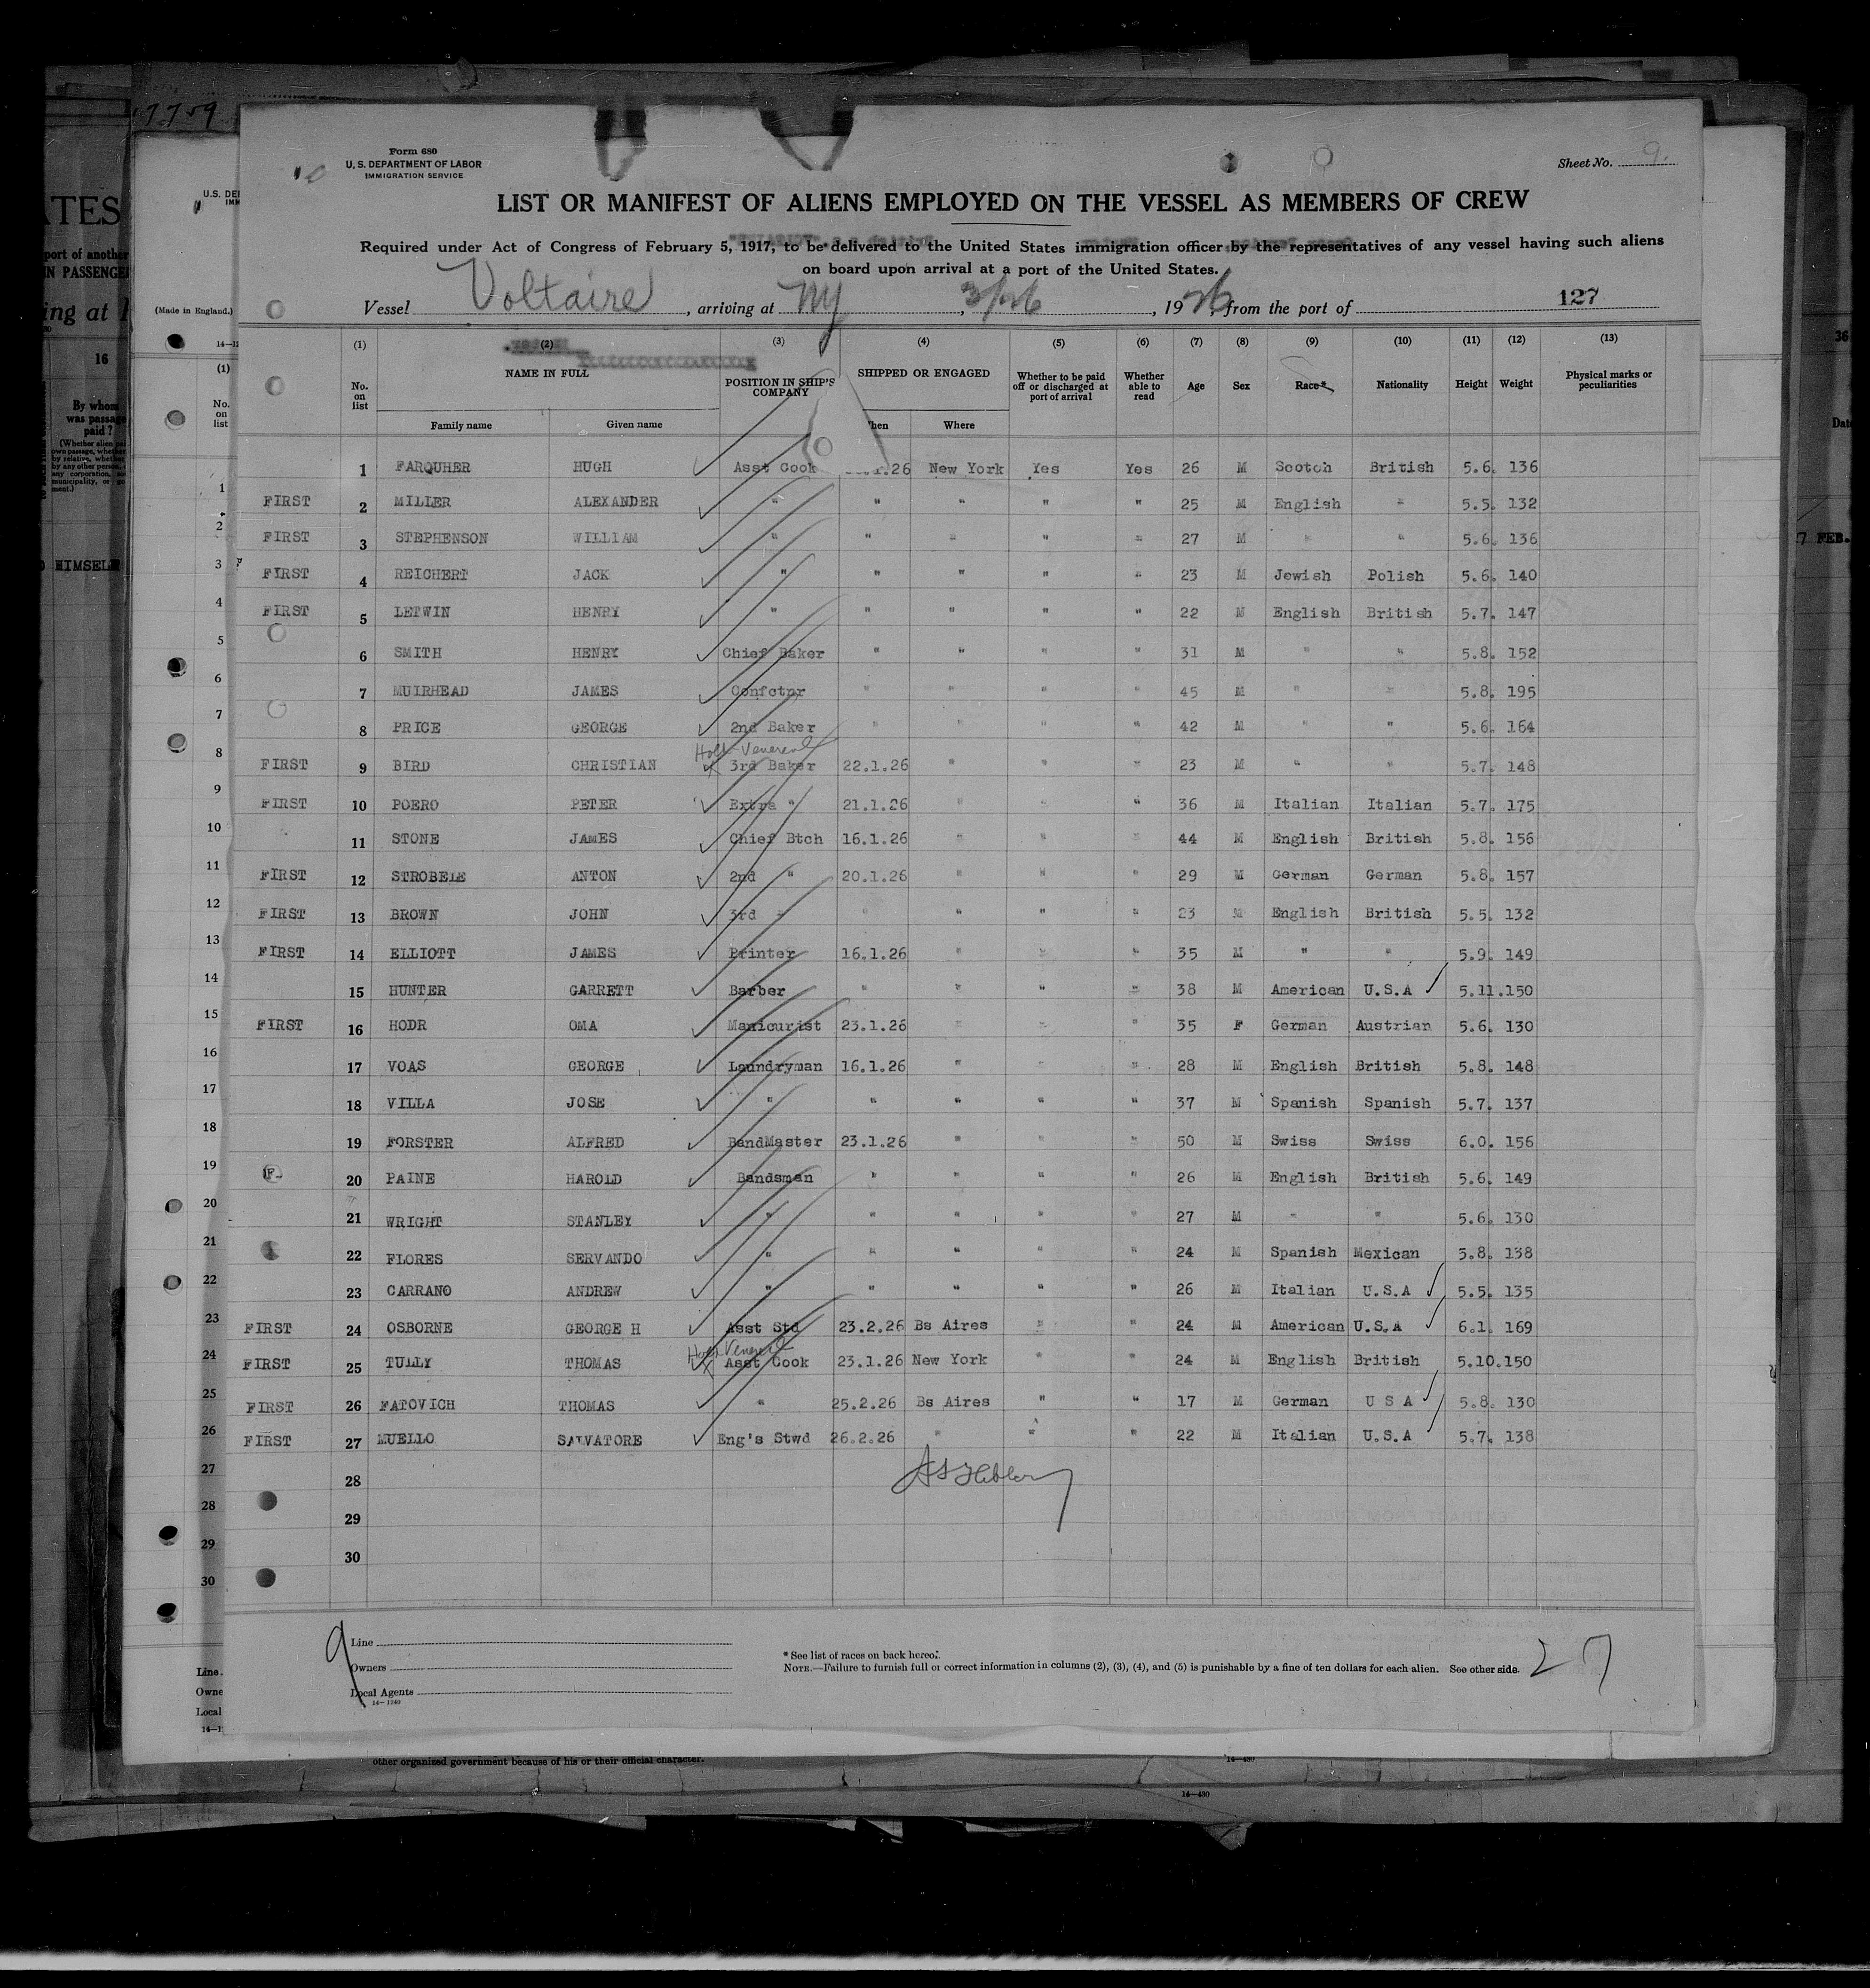 7759
Form 680
U. S. DEPARTMENT OF LABOR
IMMIGRATION SERVICE
Sheet No. 9.
LIST OR MANIFEST OF ALIENS EMPLOYED ON THE VESSEL AS MEMBERS OF CREW
Required under Act of Congress of February 5, 1917, to be delivered to the United States immigration officer by the representatives of any vessel having such aliens
on board upon arrival at a port of the United States.
Vessel Voltaire, arriving at NY, 3/26, 1926, from the port of 127
(1) (2) (3) (4) (5) (6) (7) (8) (9) (10) (11) (12) (13)
No. on list NAME IN FULL POSITION IN SHIP'S COMPANY SHIPPED OR ENGAGED Whether to be paid off or discharged at port of arrival Whether able to read Age Sex Race* Nationality Height Weight Physical marks or peculiarities
Family name Given name hen Where
1 FARQUHER HUGH Asst Cook 1.26 New York Yes Yes 26 M Scotch British 5.6. 136
FIRST 2 MILLER ALEXANDER " " " " " 25 M English " 5.5. 132
FIRST 3 STEPHENSON WILLIAM " " " " " 27 M " " 5.6. 136
FIRST 4 REICHERT JACK " " " " " 23 M Jewish Polish 5.6. 140
FIRST 5 LETWIN HENRY " " " " " 22 M English British 5.7. 147
6 SMITH HENRY Chief Baker " " " " 31 M " " 5.8. 152
7 MUIRHEAD JAMES Confctnr " " " " 45 M " " 5.8. 195
8 PRICE GEORGE 2nd Baker " " " " 42 M " " 5.6. 164
Hold Venereal
FIRST 9 BIRD CHRISTIAN 3rd Baker 22.1.26 " " " 23 M " " 5.7. 148
FIRST 10 POERO PETER Extra " 21.1.26 " " " 36 M Italian Italian 5.7. 175
11 STONE JAMES Chief Btch 16.1.26 " " " 44 M English British 5.8. 156
FIRST 12 STROBELE ANTON 2nd " 20.1.26 " " " 29 M German German 5.8. 157
FIRST 13 BROWN JOHN 3rd " " " " " 23 M English British 5.5. 132
FIRST 14 ELLIOTT JAMES Printer 16.1.26 " " " 35 M " " 5.9. 149
15 HUNTER GARRETT Barber " " " " 38 M American U.S.A 5.11. 150
FIRST 16 HODR OMA Manicurist 23.1.26 " " " 35 F German Austrian 5.6. 130
17 VOAS GEORGE Laundryman 16.1.26 " " " 28 M English British 5.8. 148
18 VILLA JOSE " " " " " 37 M Spanish Spanish 5.7. 137
19 FORSTER ALFRED BandMaster 23.1.26 " " " 50 M Swiss Swiss 6.0. 156
F 20 PAINE HAROLD Bandsman " " " " 26 M English British 5.6. 149
21 WRIGHT STANLEY " " " " " 27 M " " 5.6. 130
22 FLORES SERVANDO " " " " " 24 M Spanish Mexican 5.8. 138
23 CARRANO ANDREW " " " " " 26 M Italian U.S.A 5.5. 135
FIRST 24 OSBORNE GEORGE H Asst Std 23.2.26 Bs Aires " " 24 M American U.S.A 6.1. 169
Hold Venereal
FIRST 25 TULLY THOMAS Asst Cook 23.1.26 New York " " 24 M English British 5.10. 150
FIRST 26 FATOVICH THOMAS " 25.2.26 Bs Aires " " 17 M German U S A 5.8. 130
FIRST 27 MUELLO SALVATORE Eng's Stwd 26.2.26 " " " 22 M Italian U.S.A 5.7. 138
28
29
30
9
Line
Owners
Local Agents
14—1240
* See list of races on back hereof.
NOTE.—Failure to furnish full or correct information in columns (2), (3), (4), and (5) is punishable by a fine of ten dollars for each alien. See other side.
27
other organized government because of his or their official character.
14—430
14—430
(Made in England.)
16
By whom was passage paid?
HIMSELF